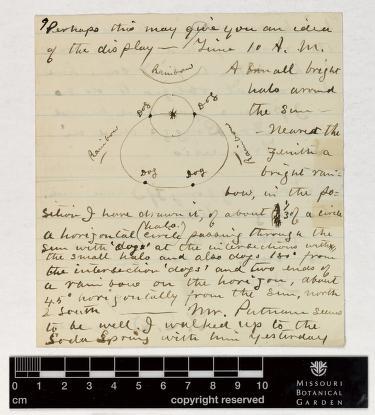 9 Perhaps this may give you an idea
of the display — Time 10 A. M.
Rainbow
A small bright
halo around
the sun —
Dog
Dog
- Near the
zenith a
bright rain-
bow, in the po-
Rainbow
Rainbow
Dog
Dog
sition I have drawn it, of about 1/3 of a circle
(halo)
a horizontal circle passing through the
sun with 'dogs' at the intersections with
the small halo and also dogs 100° from
the intersection 'dogs' and two ends of
a rainbow on the horizon, about
45° horizontally from the sun, north
& south — Mr. Putnam seems
to be well I walked up to the
Soda Spring with him yesterday
0 1 2 3 4 5 6 7 8 9 10
cm
copyright reserved
MISSOURI
BOTANICAL
GARDEN